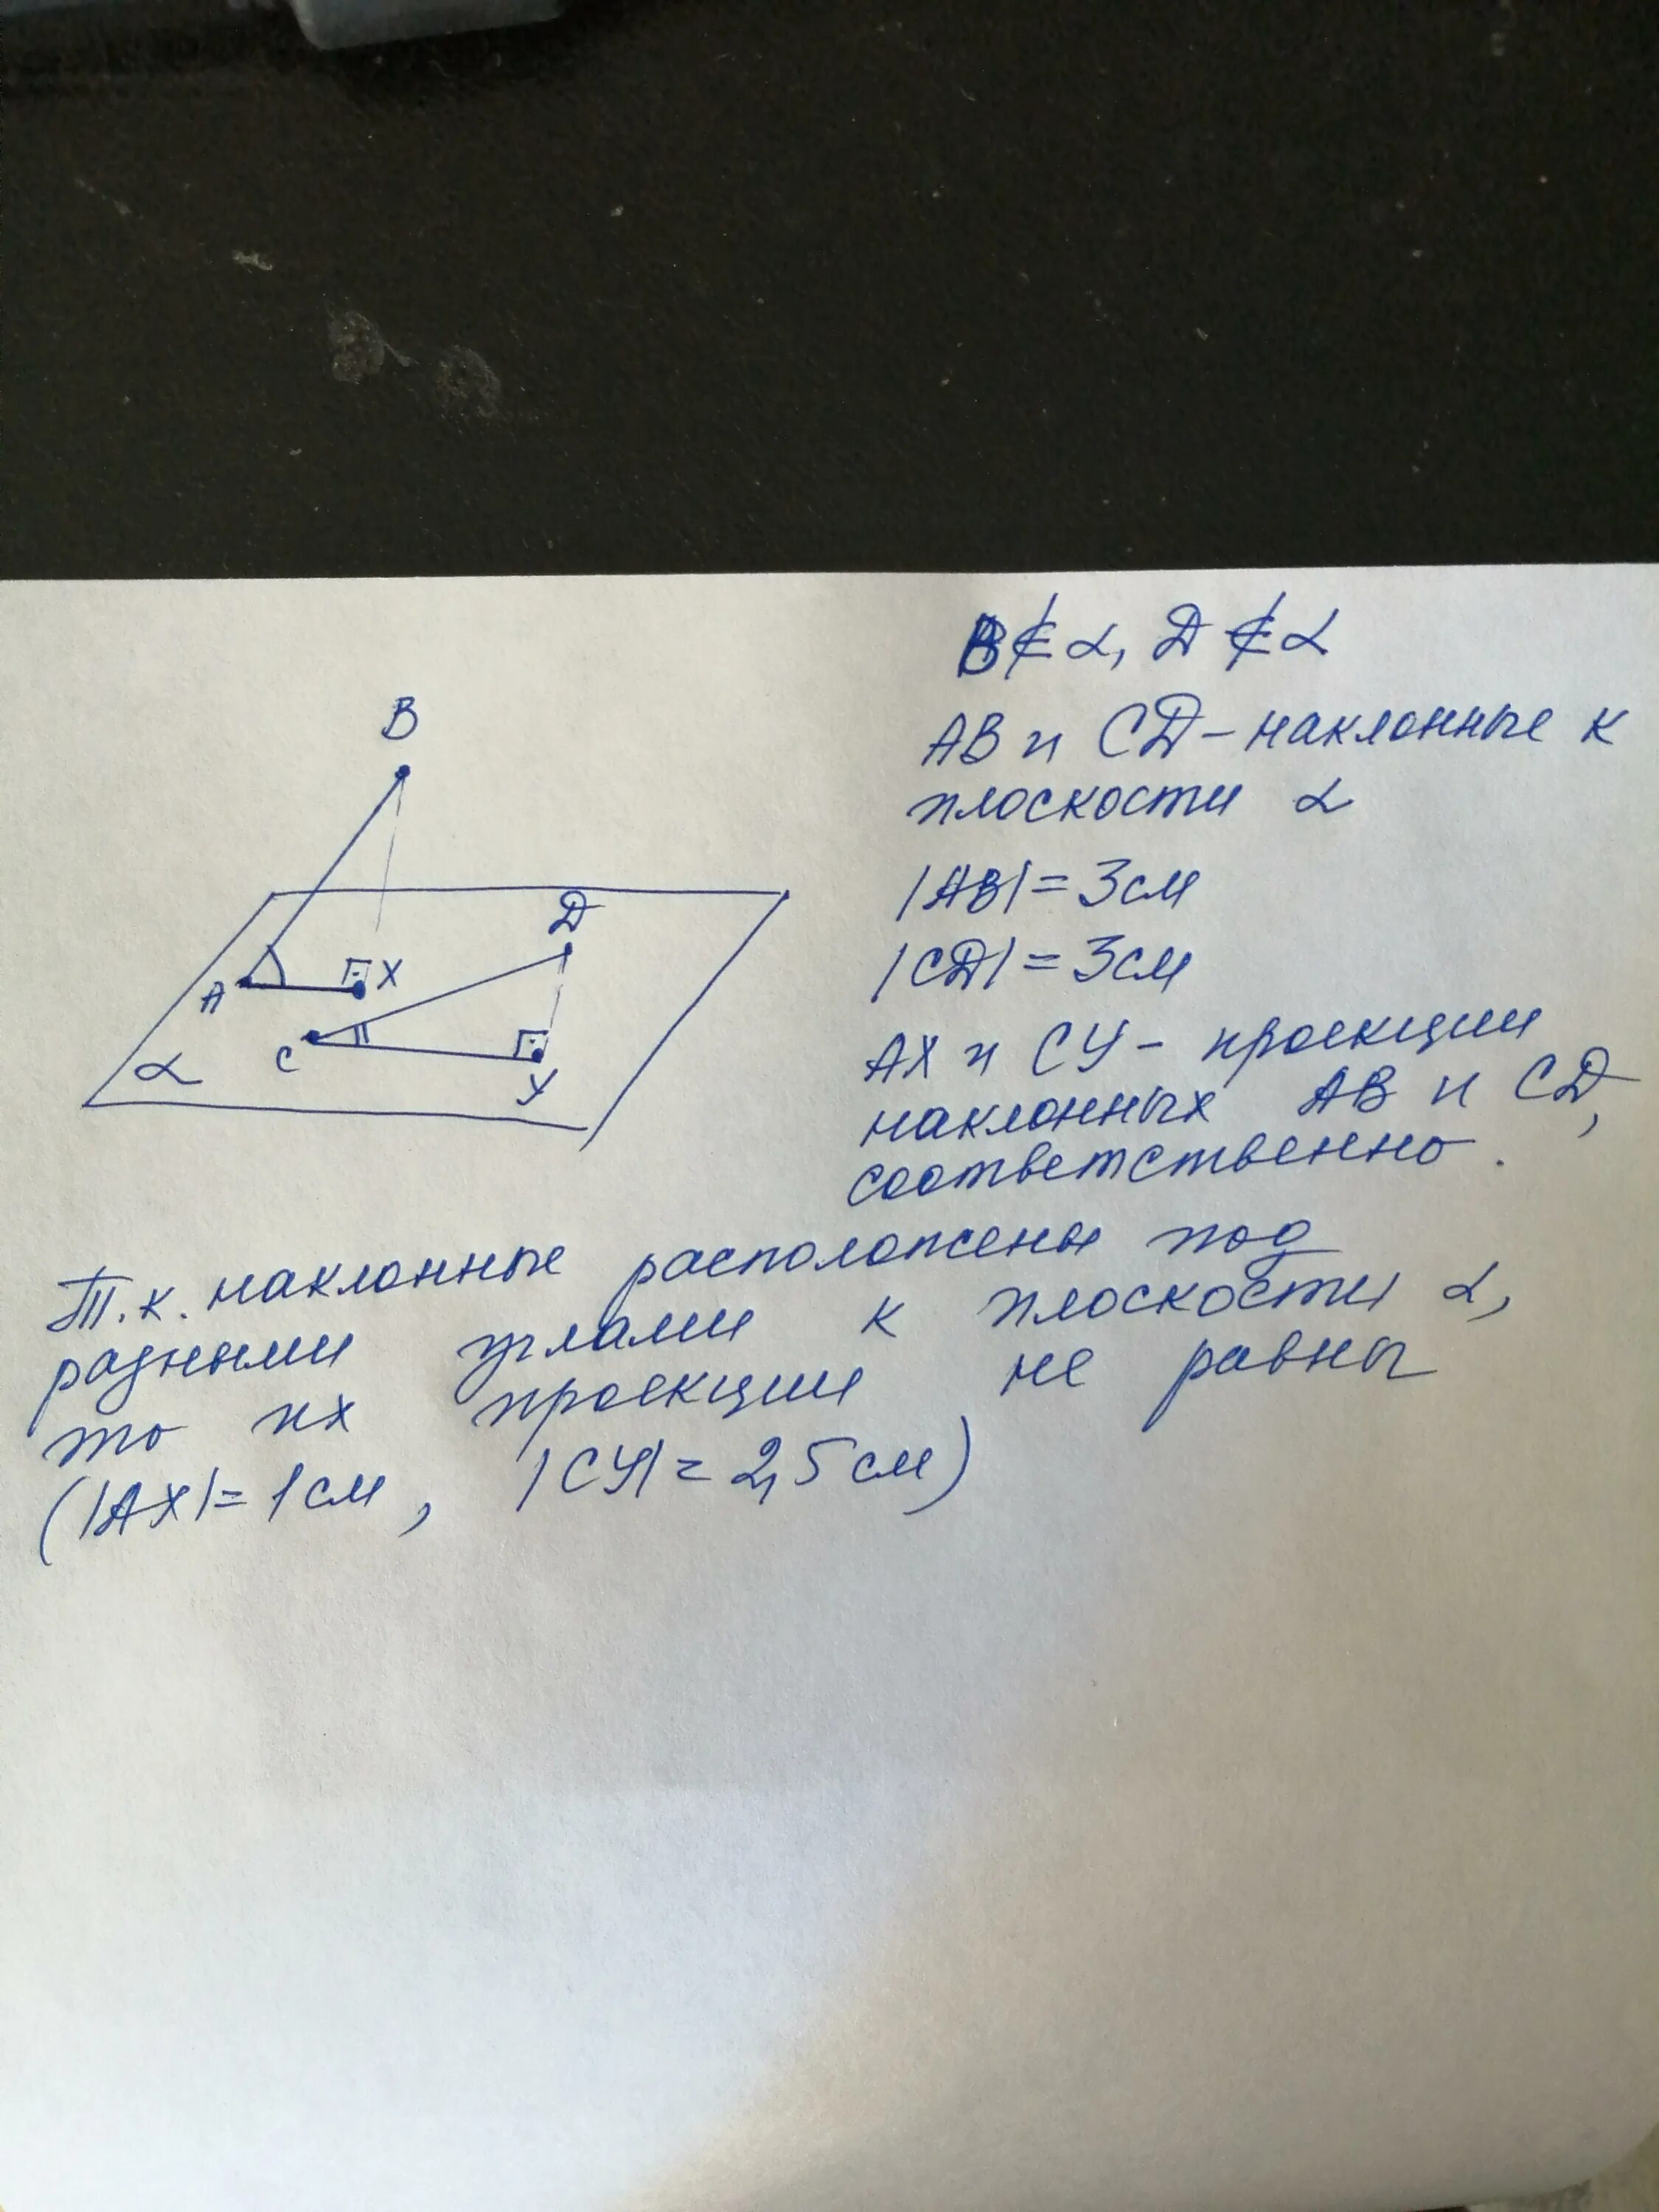 B
A
X
D
C
Y
α
B ∉ α, D ∉ α
AB и CD - наклонные к
плоскости α
|AB| = 3см
|CD| = 3см
AX и CY - проекции
наклонных AB и CD,
соответственно.
Т.к. наклонные расположены под
разными углами к плоскости α,
то их проекции не равны
(|AX| = 1см, |CY| = 2,5см)